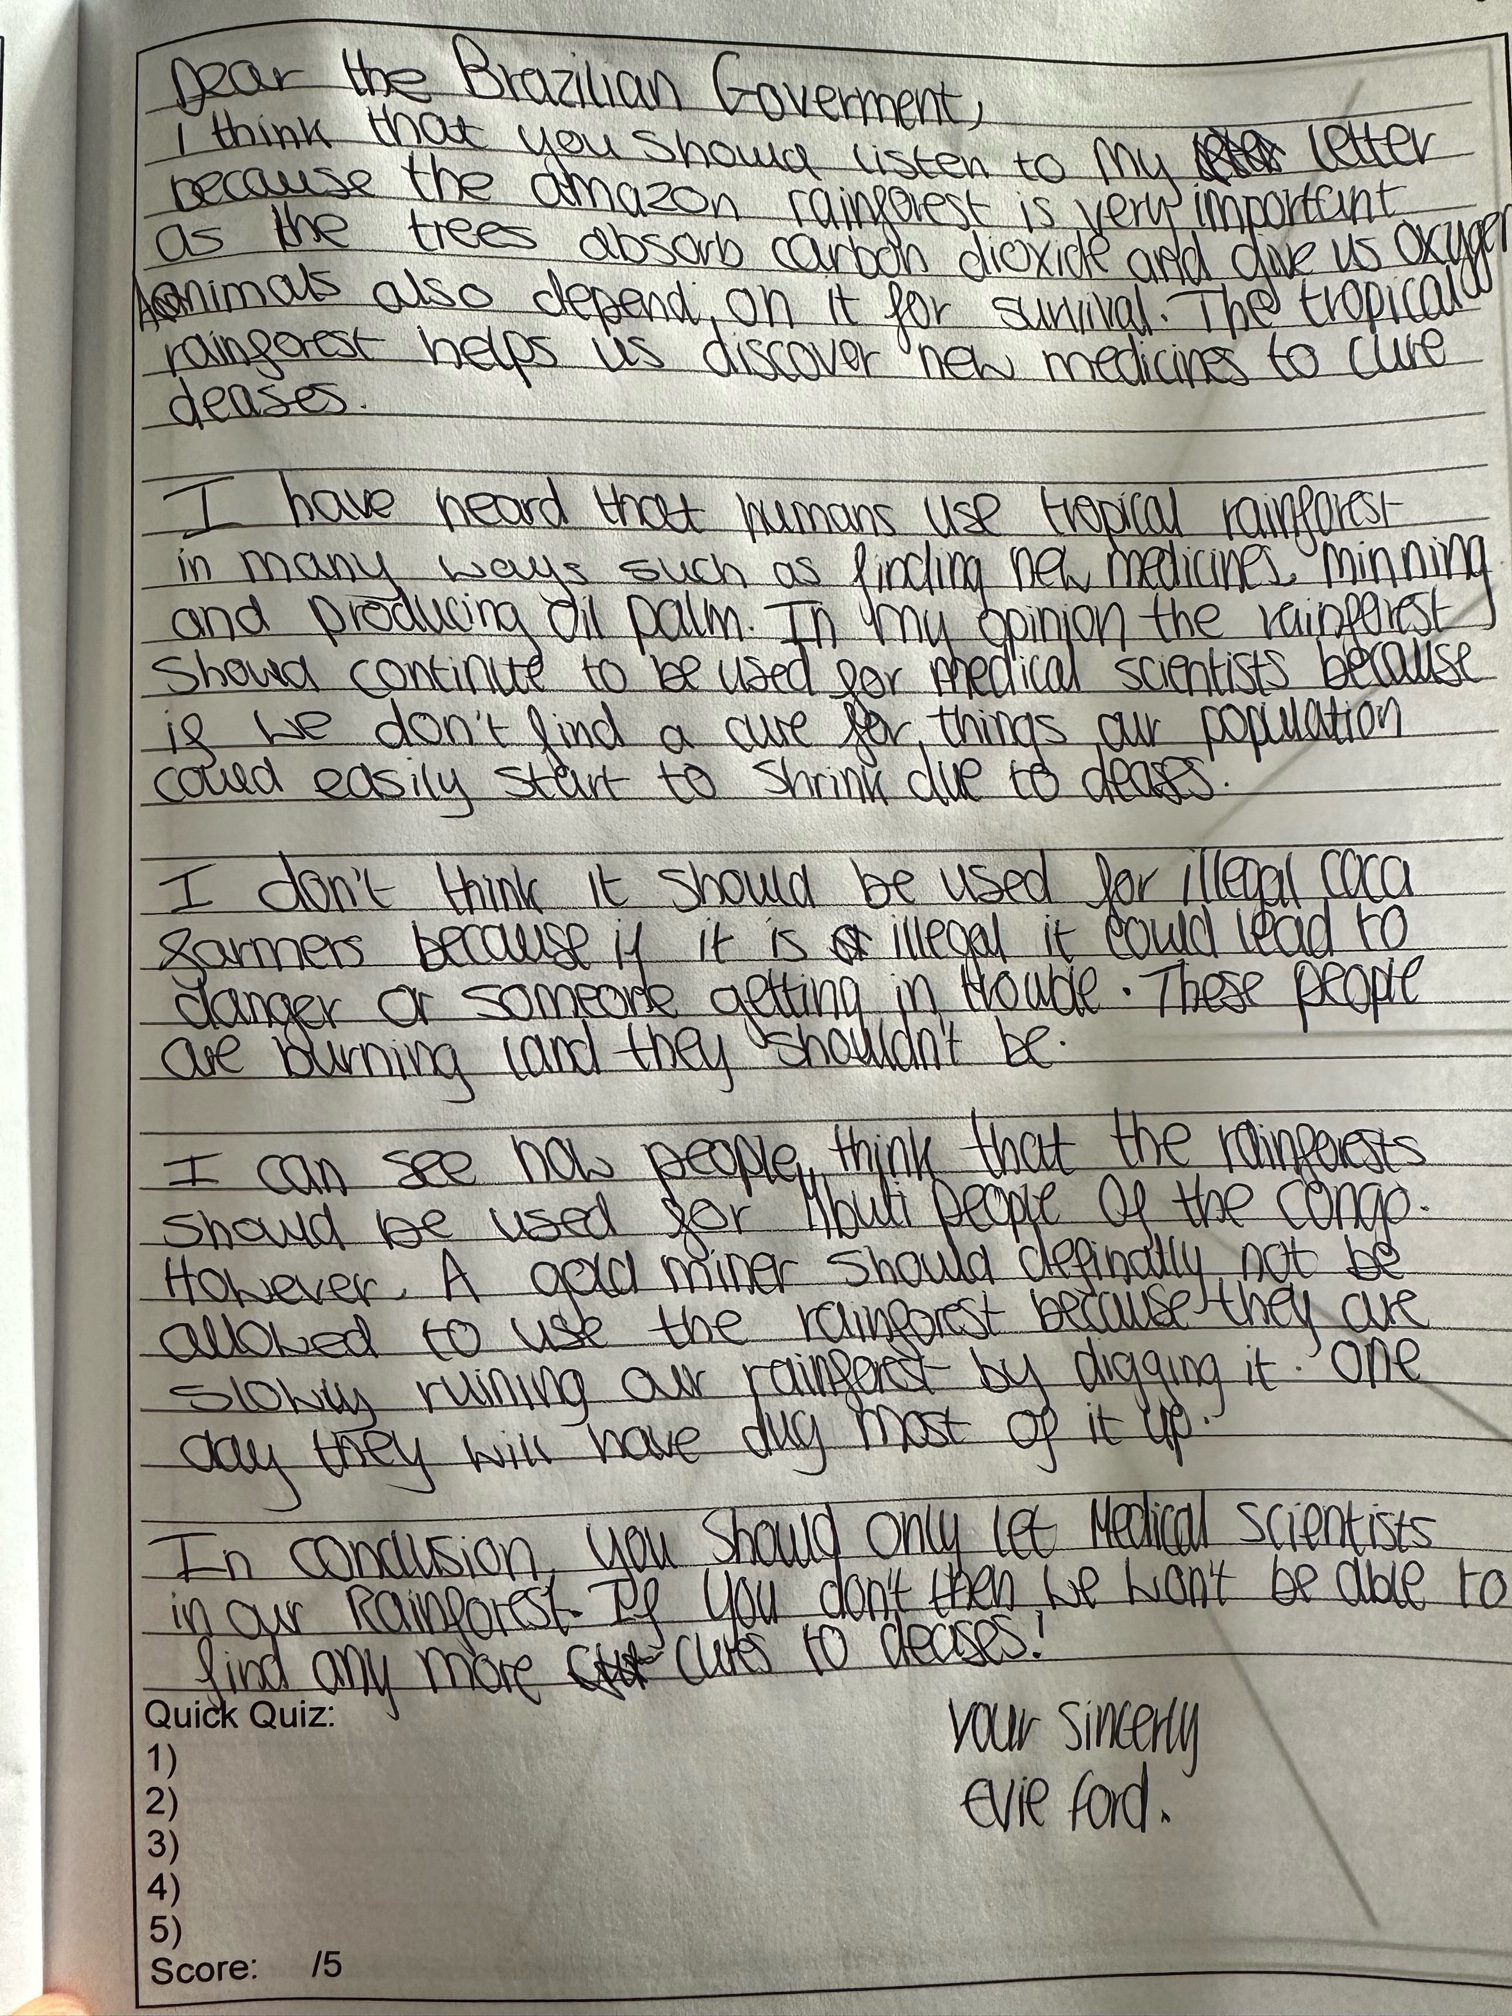 Dear the Brazilian Goverment,
I think that you should listen to my letter
because the amazon rainforest is very important
as the trees absorb carbon dioxide and give us oxygen
Animals also depend on it for survival. The tropical
rainforest helps us discover new medicines to cure
deases.
I have heard that humans use tropical rainforest
in many ways such as finding new medicines, minning
and producing oil palm. In my opinion the rainforest
should continue to be used for medical scientists because
if we don't find a cure for things our population
could easily start to shrink due to deases.
I don't think it should be used for illegal coca
farmers because if it is illegal it could lead to
danger or someone getting in trouble. These people
are burning land they shouldn't be.
I can see how people think that the rainforests
should be used for Mbuti people of the congo.
However, A gold miner should definatly not be
allowed to use the rainforest because they are
slowly ruining our rainforest by digging it. One
day they will have dug most of it up.
In conclusion, you should only let Medical scientists
in our Rainforest. If you don't then we won't be able to
find any more cures to deases!
Quick Quiz:
your sincerly
1)
2)
Evie Ford.
3)
4)
5)
Score: /5